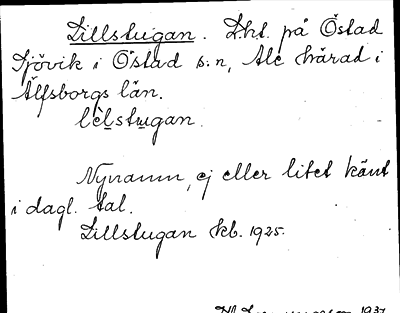 Lillstugan. Lht. på Östad
Sjövik i Östad s:n, Ale härad i
Älfsborgs län.
lèlstugan.
Nynamn, ej eller litet känt
i dagl. tal.
Lillstugan kb. 1925.
1937